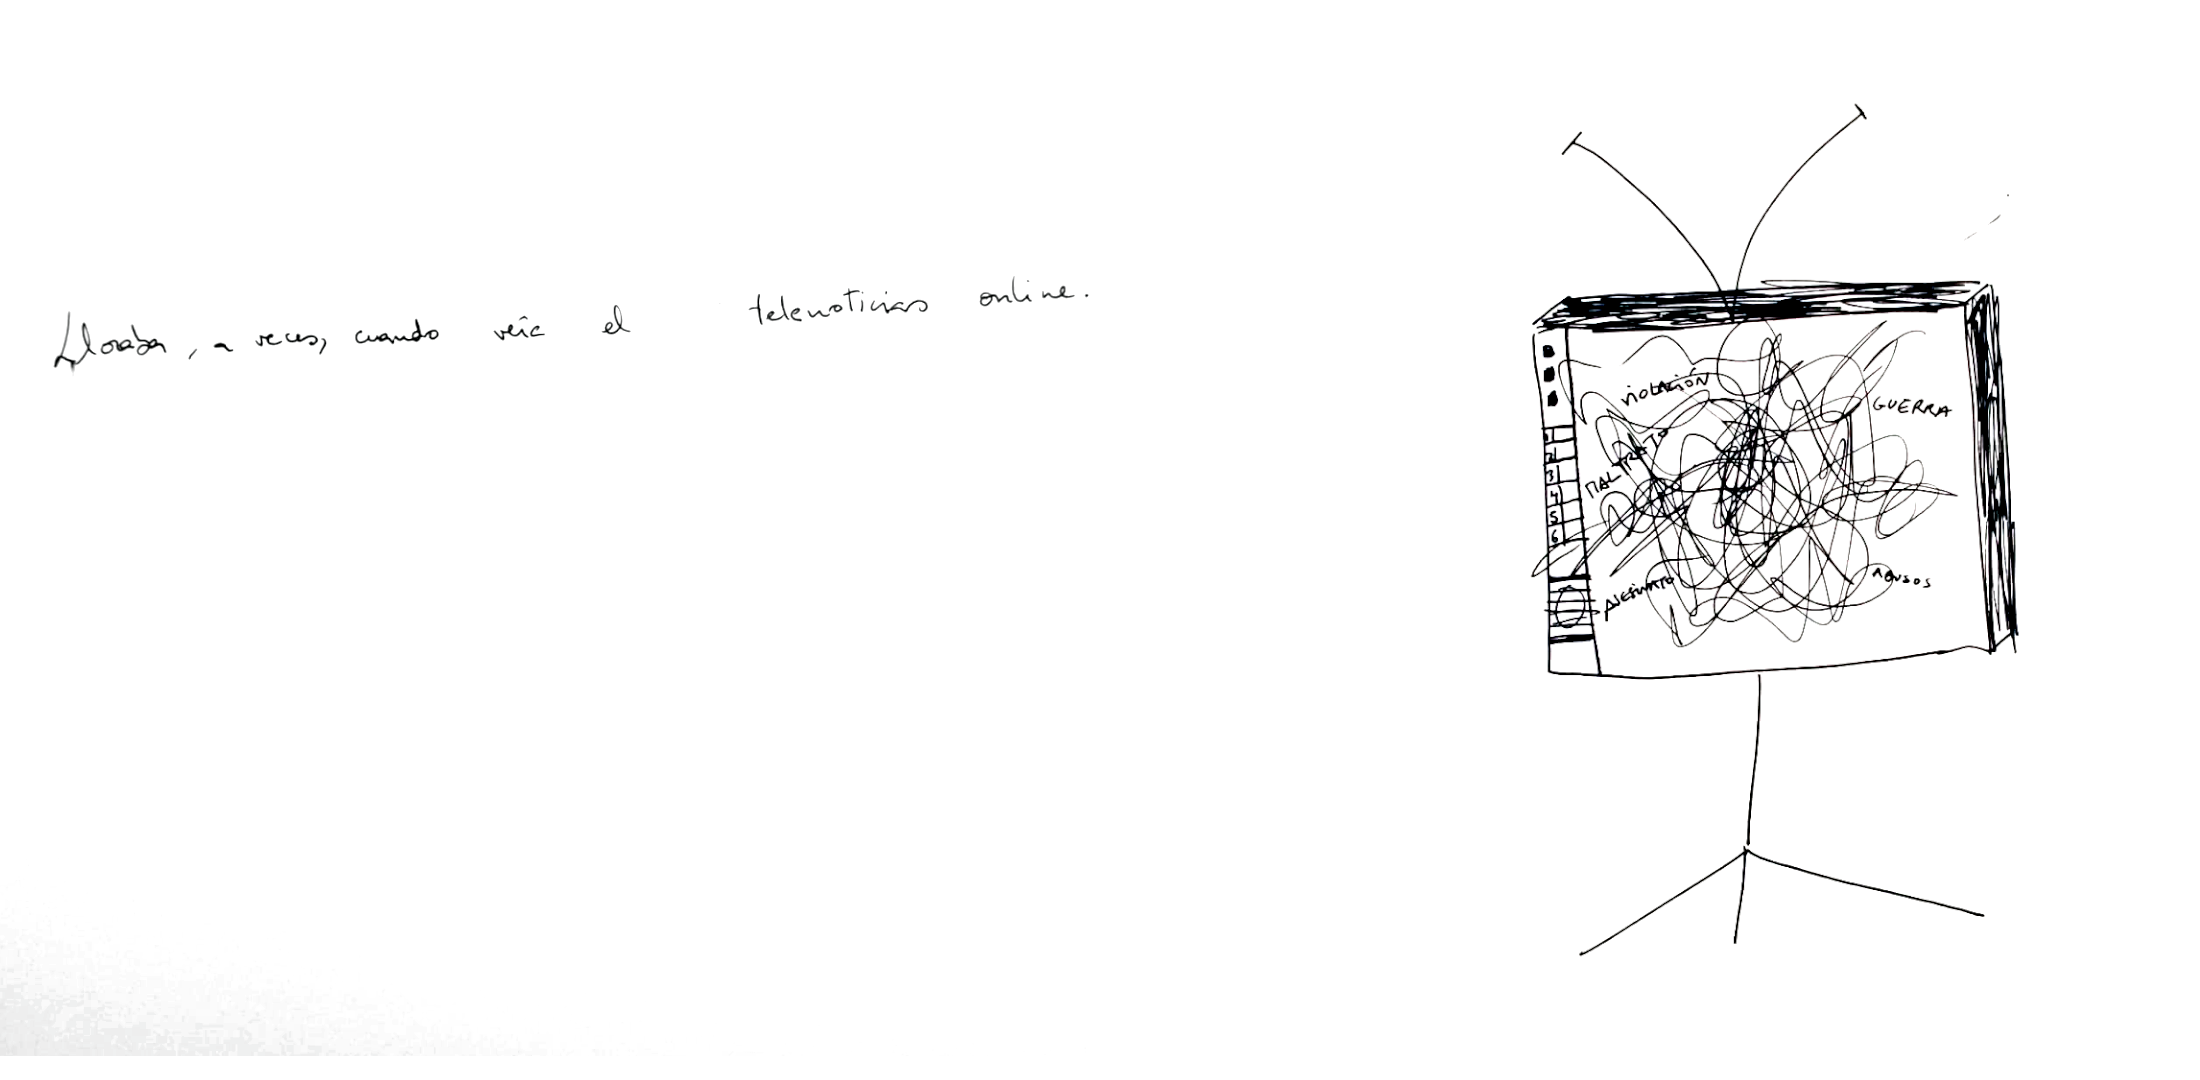 Lloraba, a veces, cuando veía el telenoticias online.
VIOLACIÓN
GUERRA
MALTRATO
1
2
3
4
5
6
ASESINATO
ABUSOS